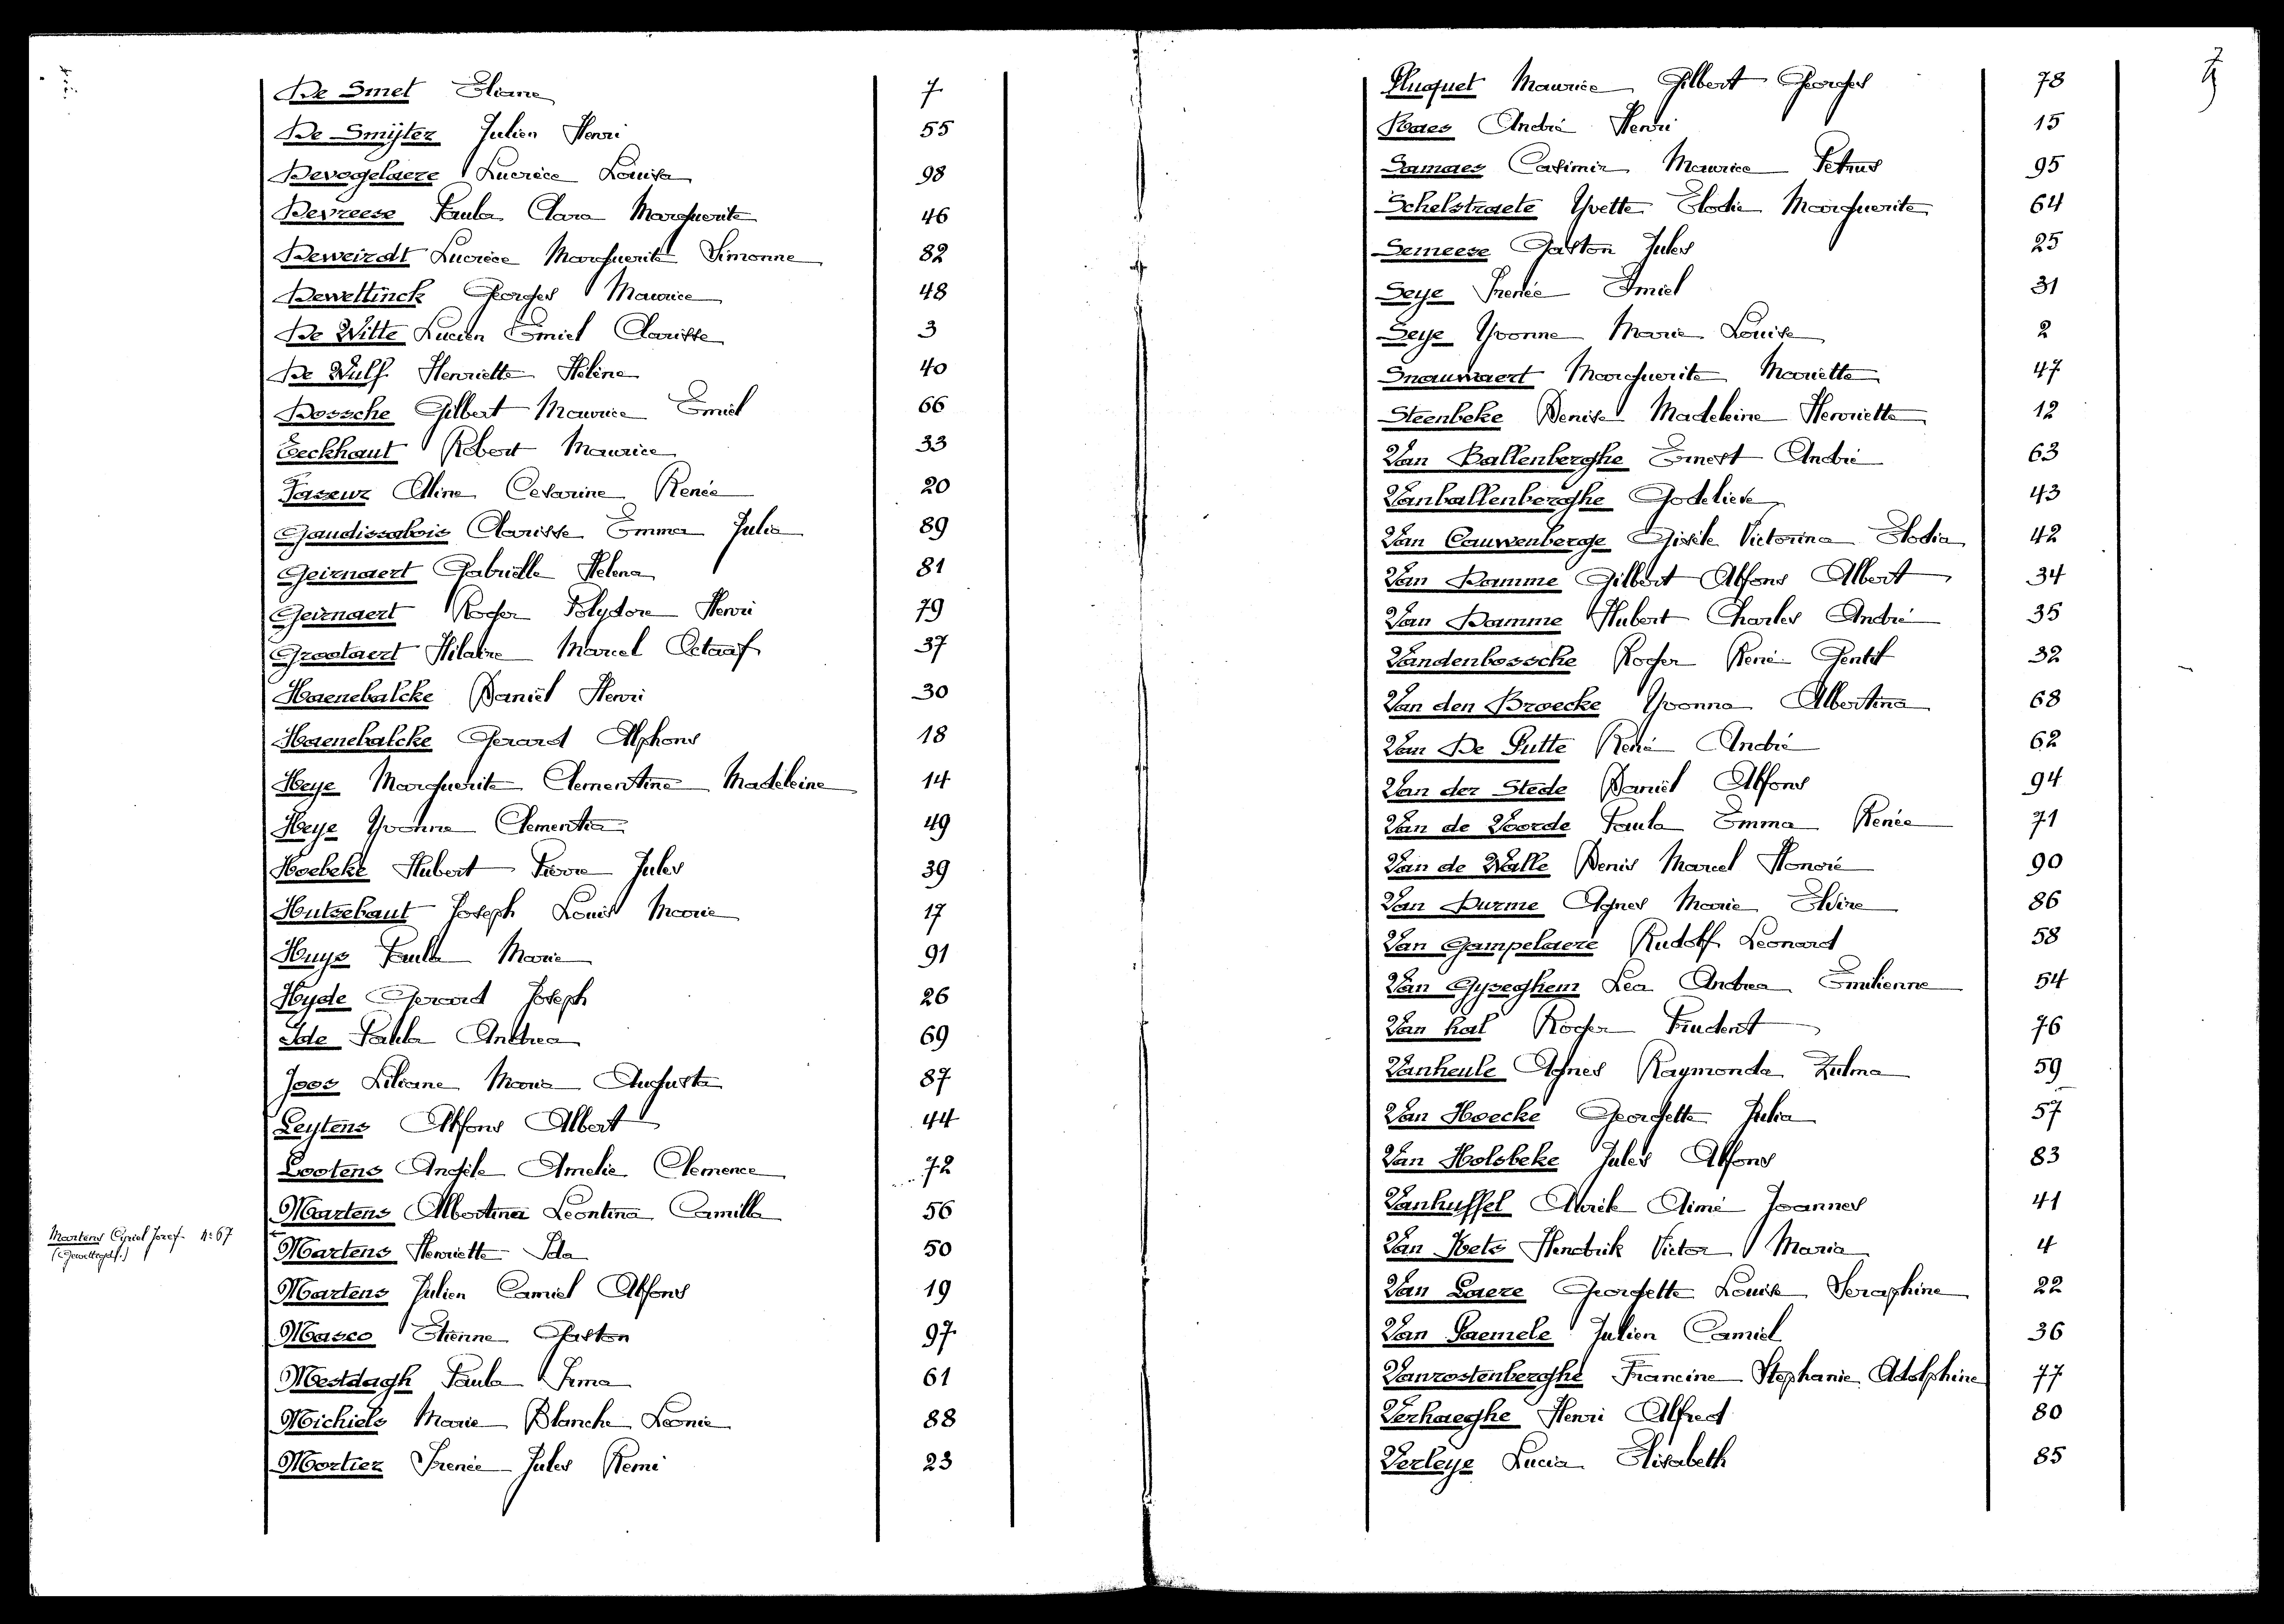 De Smet Eliane 7
De Smijter Julien Henri 55
Devogelaere Lucrèce Louisa 98
Devreese Paula Clara Marguerite 46
Deweirdt Lucrèce Marguerite Simonne 82
Dewettinck Georges Maurice 48
De Witte Lucien Emiel Clarisse 3
De Wulf Henriette Hélène 40
Dossche Gilbert Maurice Emiel 66
Eeckhaut Robert Maurice 33
Faseur Aline Cesarine Renée 20
Gaudissabois Clarisse Emma Julia 89
Geirnaert Gabriëlle Helena 81
Geirnaert Roger Polydore Henri 79
Grootaert Hilaire Marcel Octaaf 37
Haenebalcke Daniël Henri 30
Haenebalcke Gerard Alphons 18
Heye Marguerite Clementine Madeleine 14
Heye Yvonne Clementia 49
Hoebeke Hubert Pierre Jules 39
Hutsebaut Joseph Louis Marie 17
Huys Paula Marie 91
Hyde Gerard Joseph 26
Ide Paula Andrea 69
Joos Liliane Maria Augusta 87
Leytens Alfons Albert 44
Lootens Angèle Amelie Clemence 72
Martens Albertina Leontina Camilla 56
Martens Cyriel Jozef n: 67
Martens Henriette Ida 50
Martens Julien Camiel Alfons 19
Masco Etienne Gaston 97
Mestdagh Paula Irma 61
Michiels Marie Blanche Leonie 88
Mortier Irenée Jules Remi 23
Pluquet Maurice Gilbert Georges 78
Raes André Henri 15
Samaes Casimir Maurice Petrus 95
Schelstraete Yvette Elodie Marguerite 64
Semeese Gaston Jules 25
Seye Irenée Emiel 31
Seye Yvonne Marie Louise 2
Snauwaert Marguerite Mariette 47
Steenbeke Denise Madeleine Henriette 12
Van Ballenberghe Ernest André 63
Vanballenberghe Godelieve 43
Van Cauwenberge Gisèle Victorina Elodia 42
Van Damme Gilbert Alfons Albert 34
Van Damme Hubert Charles André 35
Vandenbossche Roger René Gentil 32
Van den Broecke Yvonna Albertina 68
Van De Putte René André 62
Van der Stede Daniël Alfons 94
Van de Voorde Paula Emma Renée 71
Van de Walle Denis Marcel Honoré 90
Van Durme Agnes Marie Elvire 86
Van Gampelaere Rudolf Leonard 58
Van Gyseghem Lea Andrea Emilienne 54
Van hal Roger Prudent 76
Vanheule Agnes Raymonda Zulma 59
Van Hoecke Georgette Julia 57
Van Holsbeke Jules Alfons 83
Vanhuffel Alrik Aimé Joannes 41
Van Kets Hendrik Victor Maria 4
Van Laere Georgette Louise Seraphine 22
Van Paemele Julien Camiel 36
Vanrostenberghe Francine Stephanie Adolphine 77
Verhaeghe Henri Alfred 80
Verleye Lucia Elisabeth 85